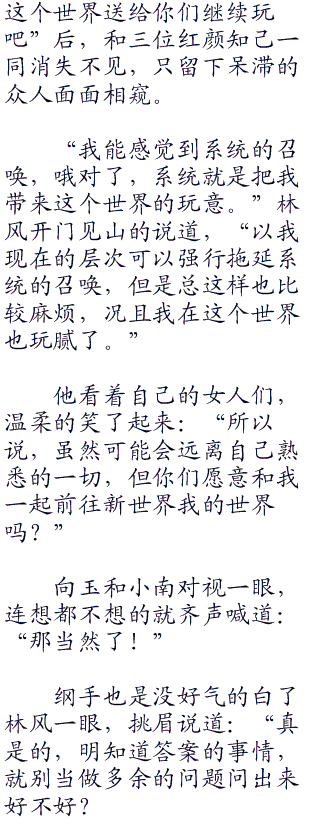 这个世界送给你们继续玩
吧”后，和三位红颜知己一
同消失不见，只留下呆滞的
众人面面相窥。
“我能感觉到系统的召
唤，哦对了，系统就是把我
带来这个世界的玩意。”林
风开门见山的说道，“以我
现在的层次可以强行拖延系
统的召唤，但是总这样也比
较麻烦，况且我在这个世界
也玩腻了。”
他看着自己的女人们，
温柔的笑了起来：“所以
说，虽然可能会远离自己熟
悉的一切，但你们愿意和我
一起前往新世界我的世界
吗？”
向玉和小南对视一眼，
连想都不想的就齐声喊道：
“那当然了！”
纲手也是没好气的白了
林风一眼，挑眉说道：“真
是的，明知道答案的事情，
就别当做多余的问题问出来
好不好？